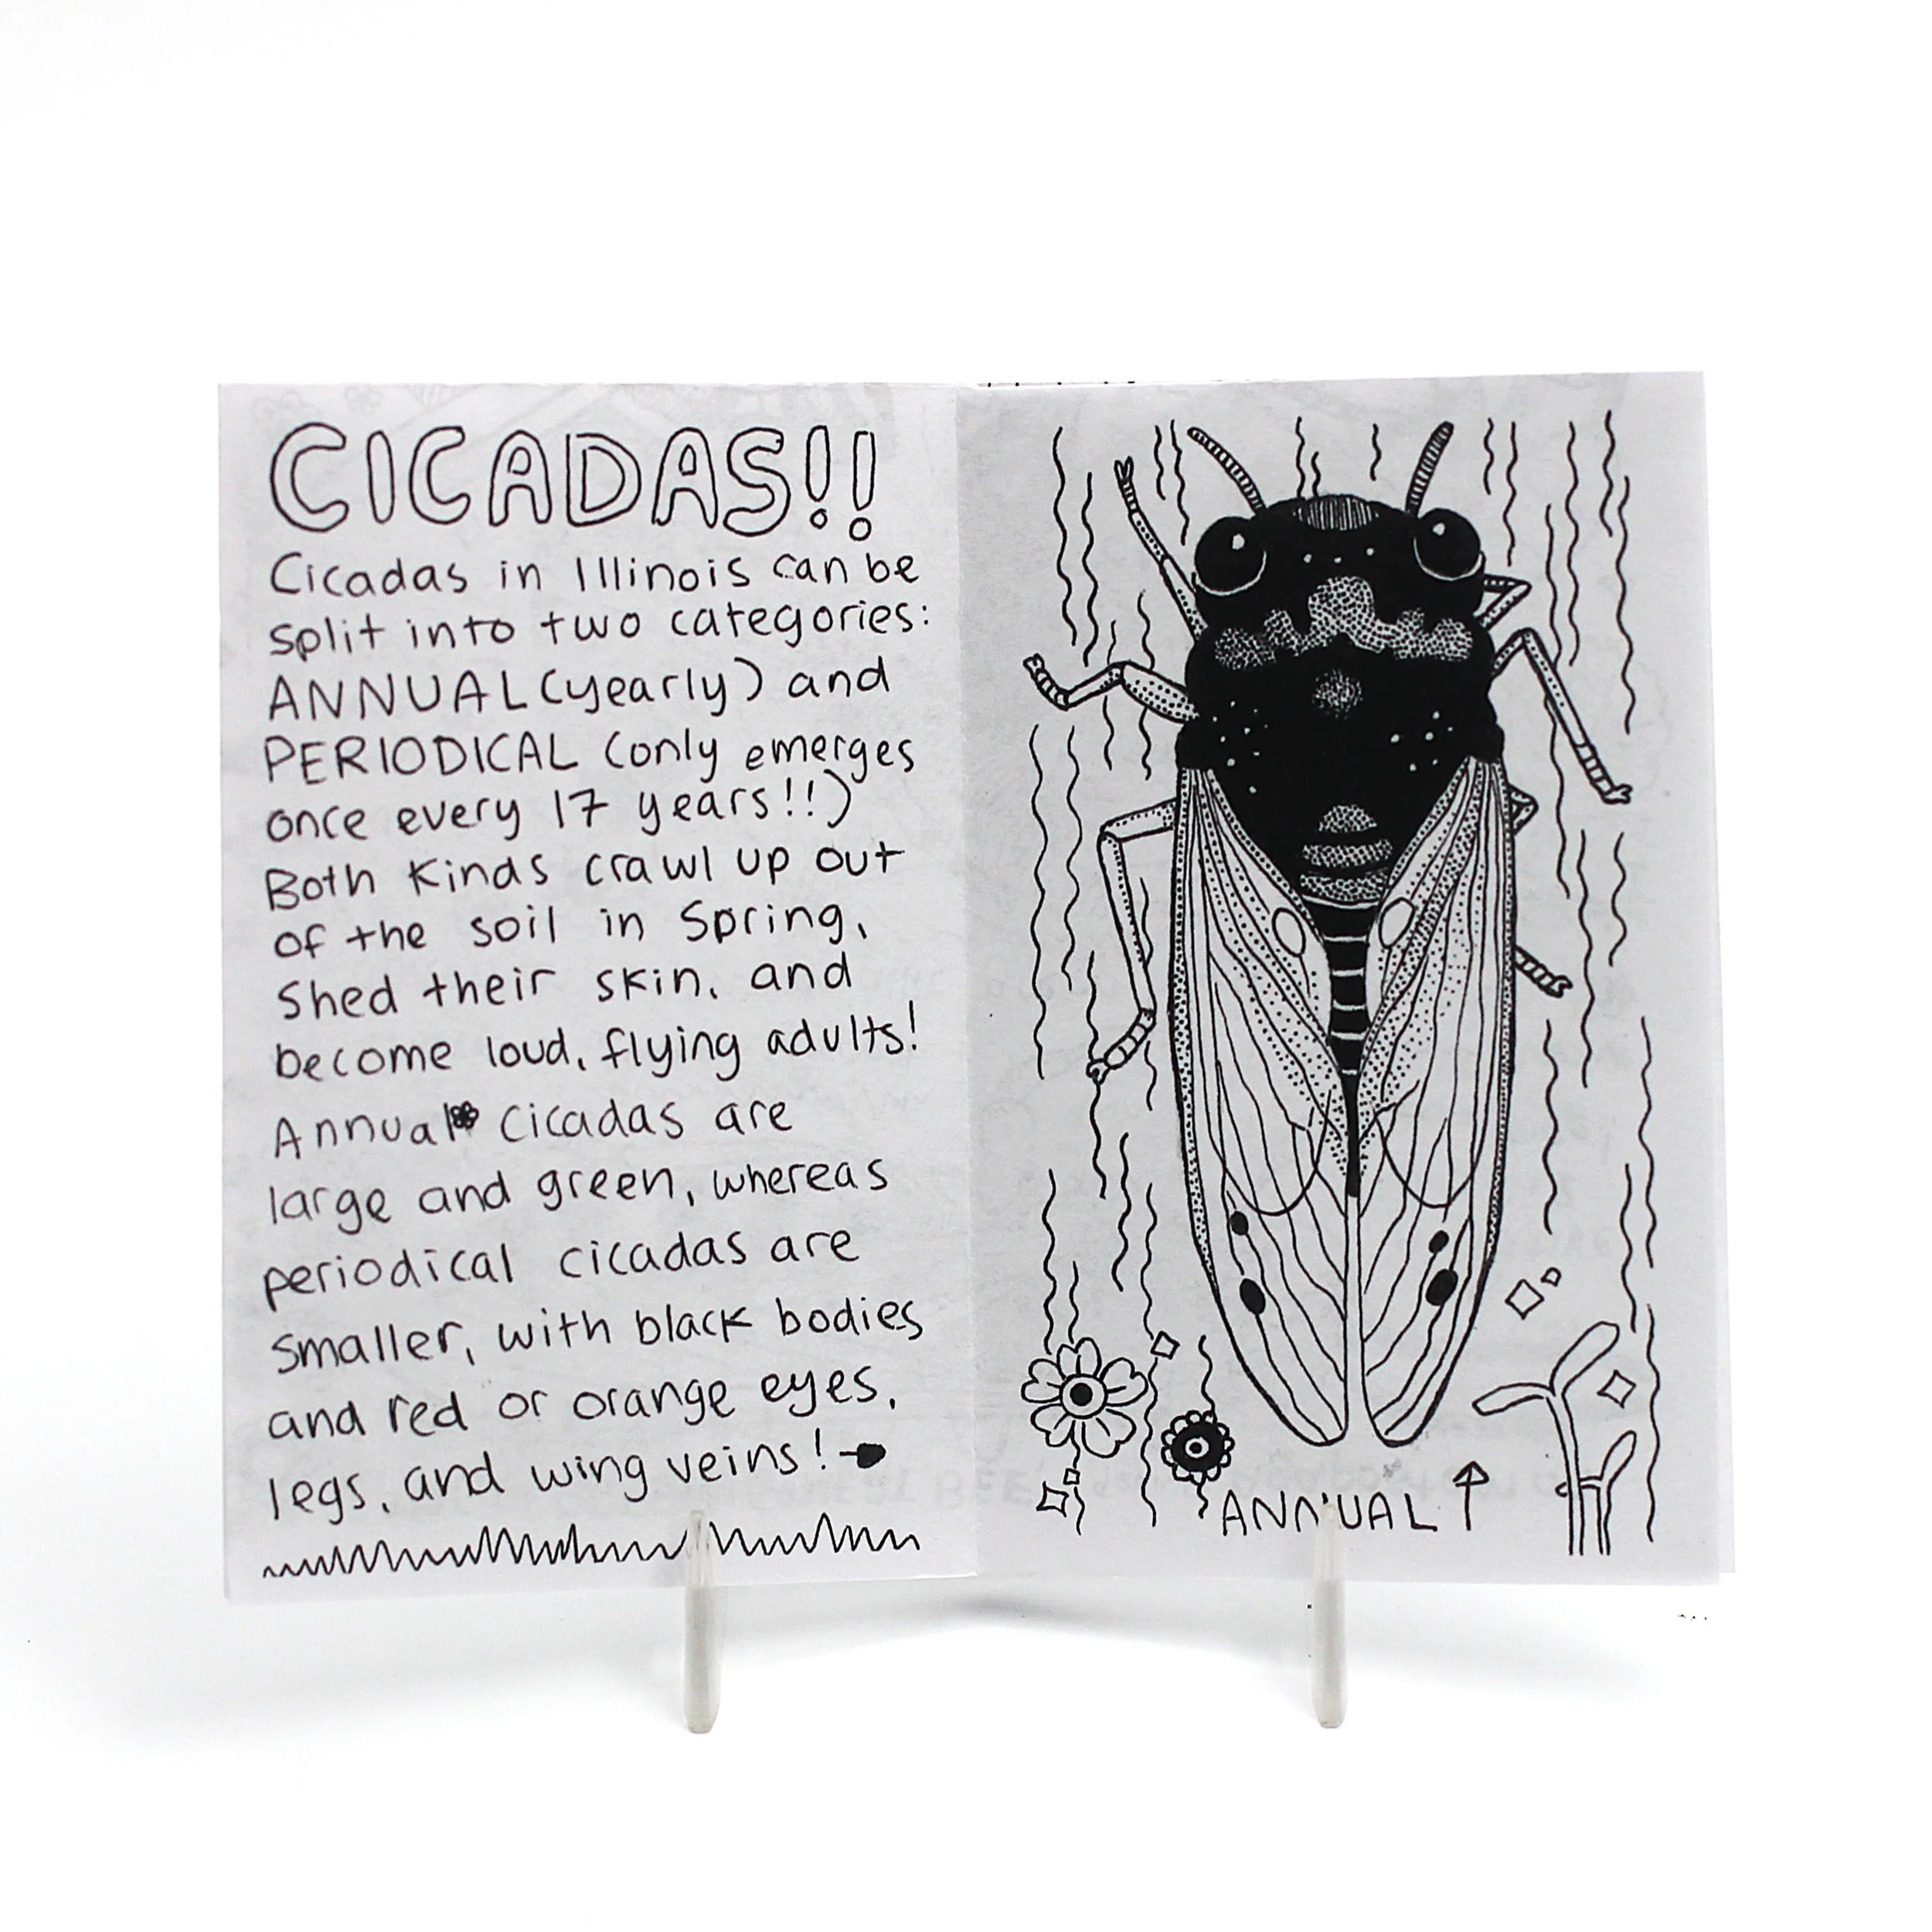 CICADAS!!
Cicadas in Illinois can be
split into two categories:
ANNUAL (yearly) and
PERIODICAL (only emerges
once every 17 years!!)
Both kinds crawl up out
of the soil in Spring,
Shed their skin, and
become loud, flying adults!
Annual cicadas are
large and green, whereas
periodical cicadas are
smaller, with black bodies
and red or orange eyes,
legs, and wing veins!
ANNUAL